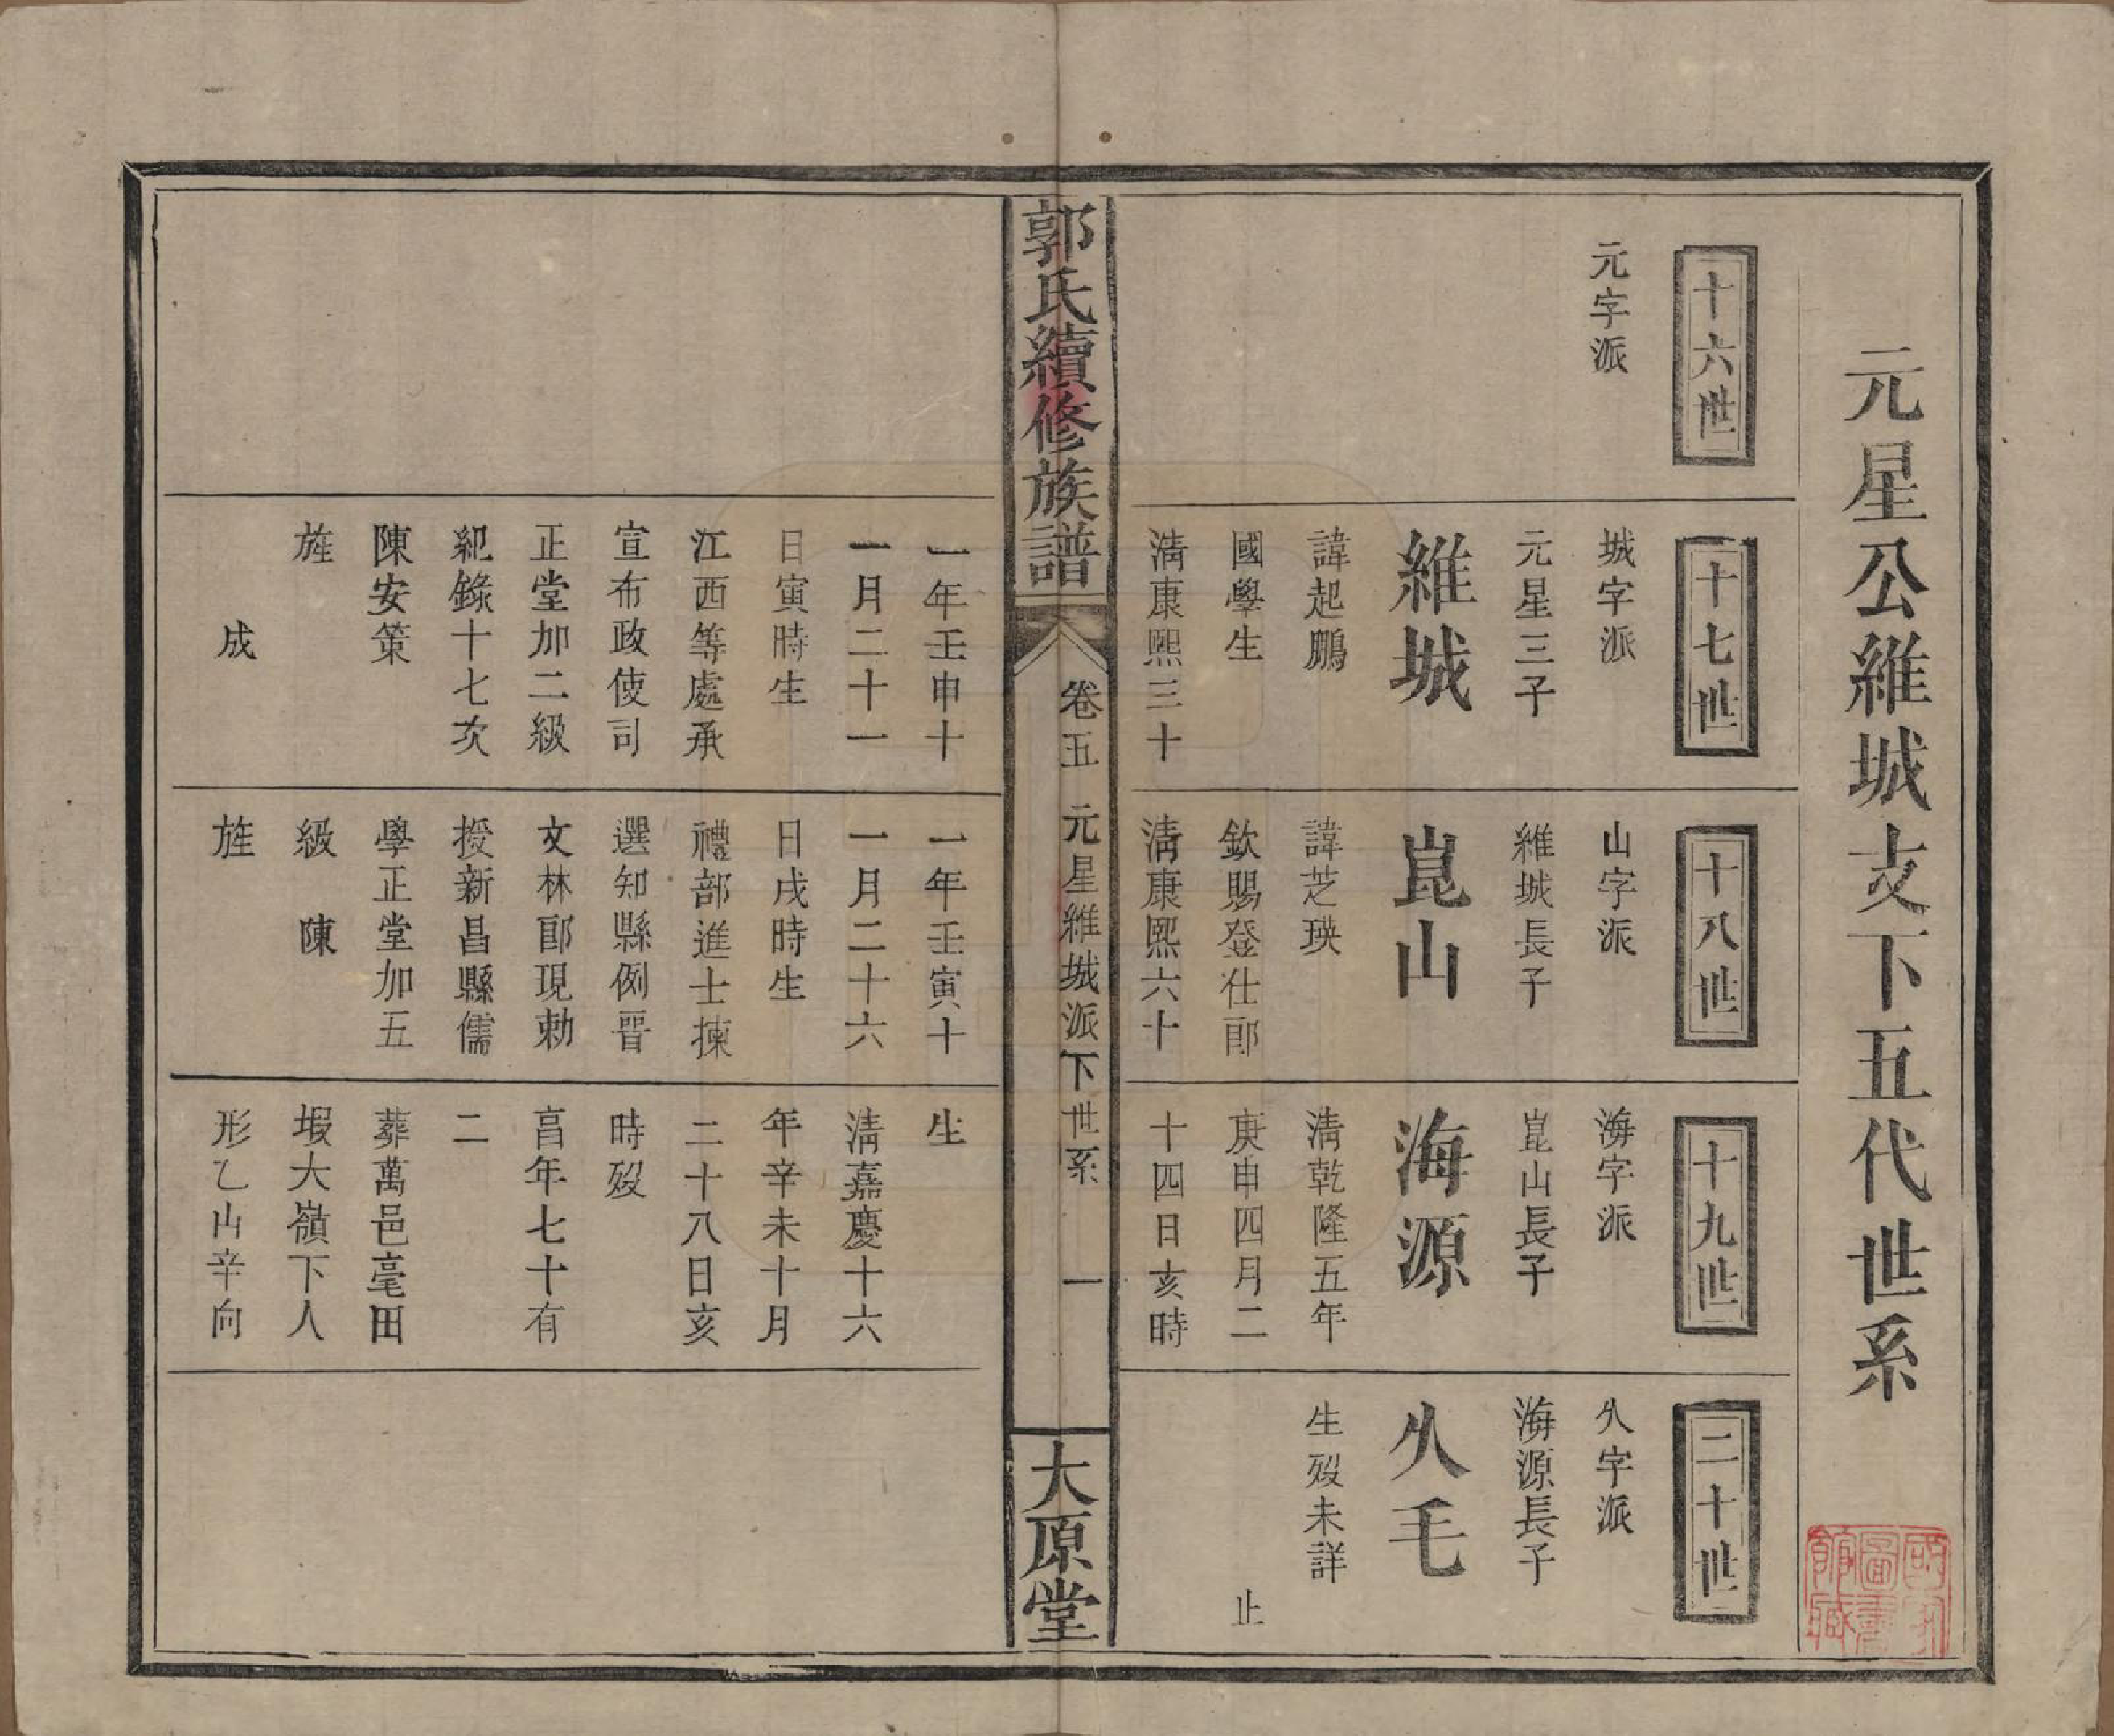 元星公維城支下五代世系
十六世
元字派
十七世
城字派
元星三子
維城
諱起鵬
國學生
淸康熙三十
十八世
山字派
維城長子
崑山
諱芝瑛
欽賜登仕郎
淸康熙六十
十九世
海字派
崑山長子
海源
淸乾隆五年
庚申四月二
十四日亥時
二十世
久字派
海源長子
久毛
生歿未詳
止
郭氏續修族譜
卷五
元星維城派下世系
一
大原堂
一年壬申十
一月二十一
日寅時生
江西等處承
宣布政使司
正堂加二級
紀錄十七次
陳安策
旌
成
一年壬寅十
一月二十六
日戌時生
禮部進士揀
選知縣例晋
文林郎現勅
授新昌縣儒
學正堂加五
級 陳
旌
生
淸嘉慶十六
年辛未十月
二十八日亥
時歿
亯年七十有
二
葬萬邑亳田
塅大嶺下人
形乙山辛向
國家
圖書
館藏